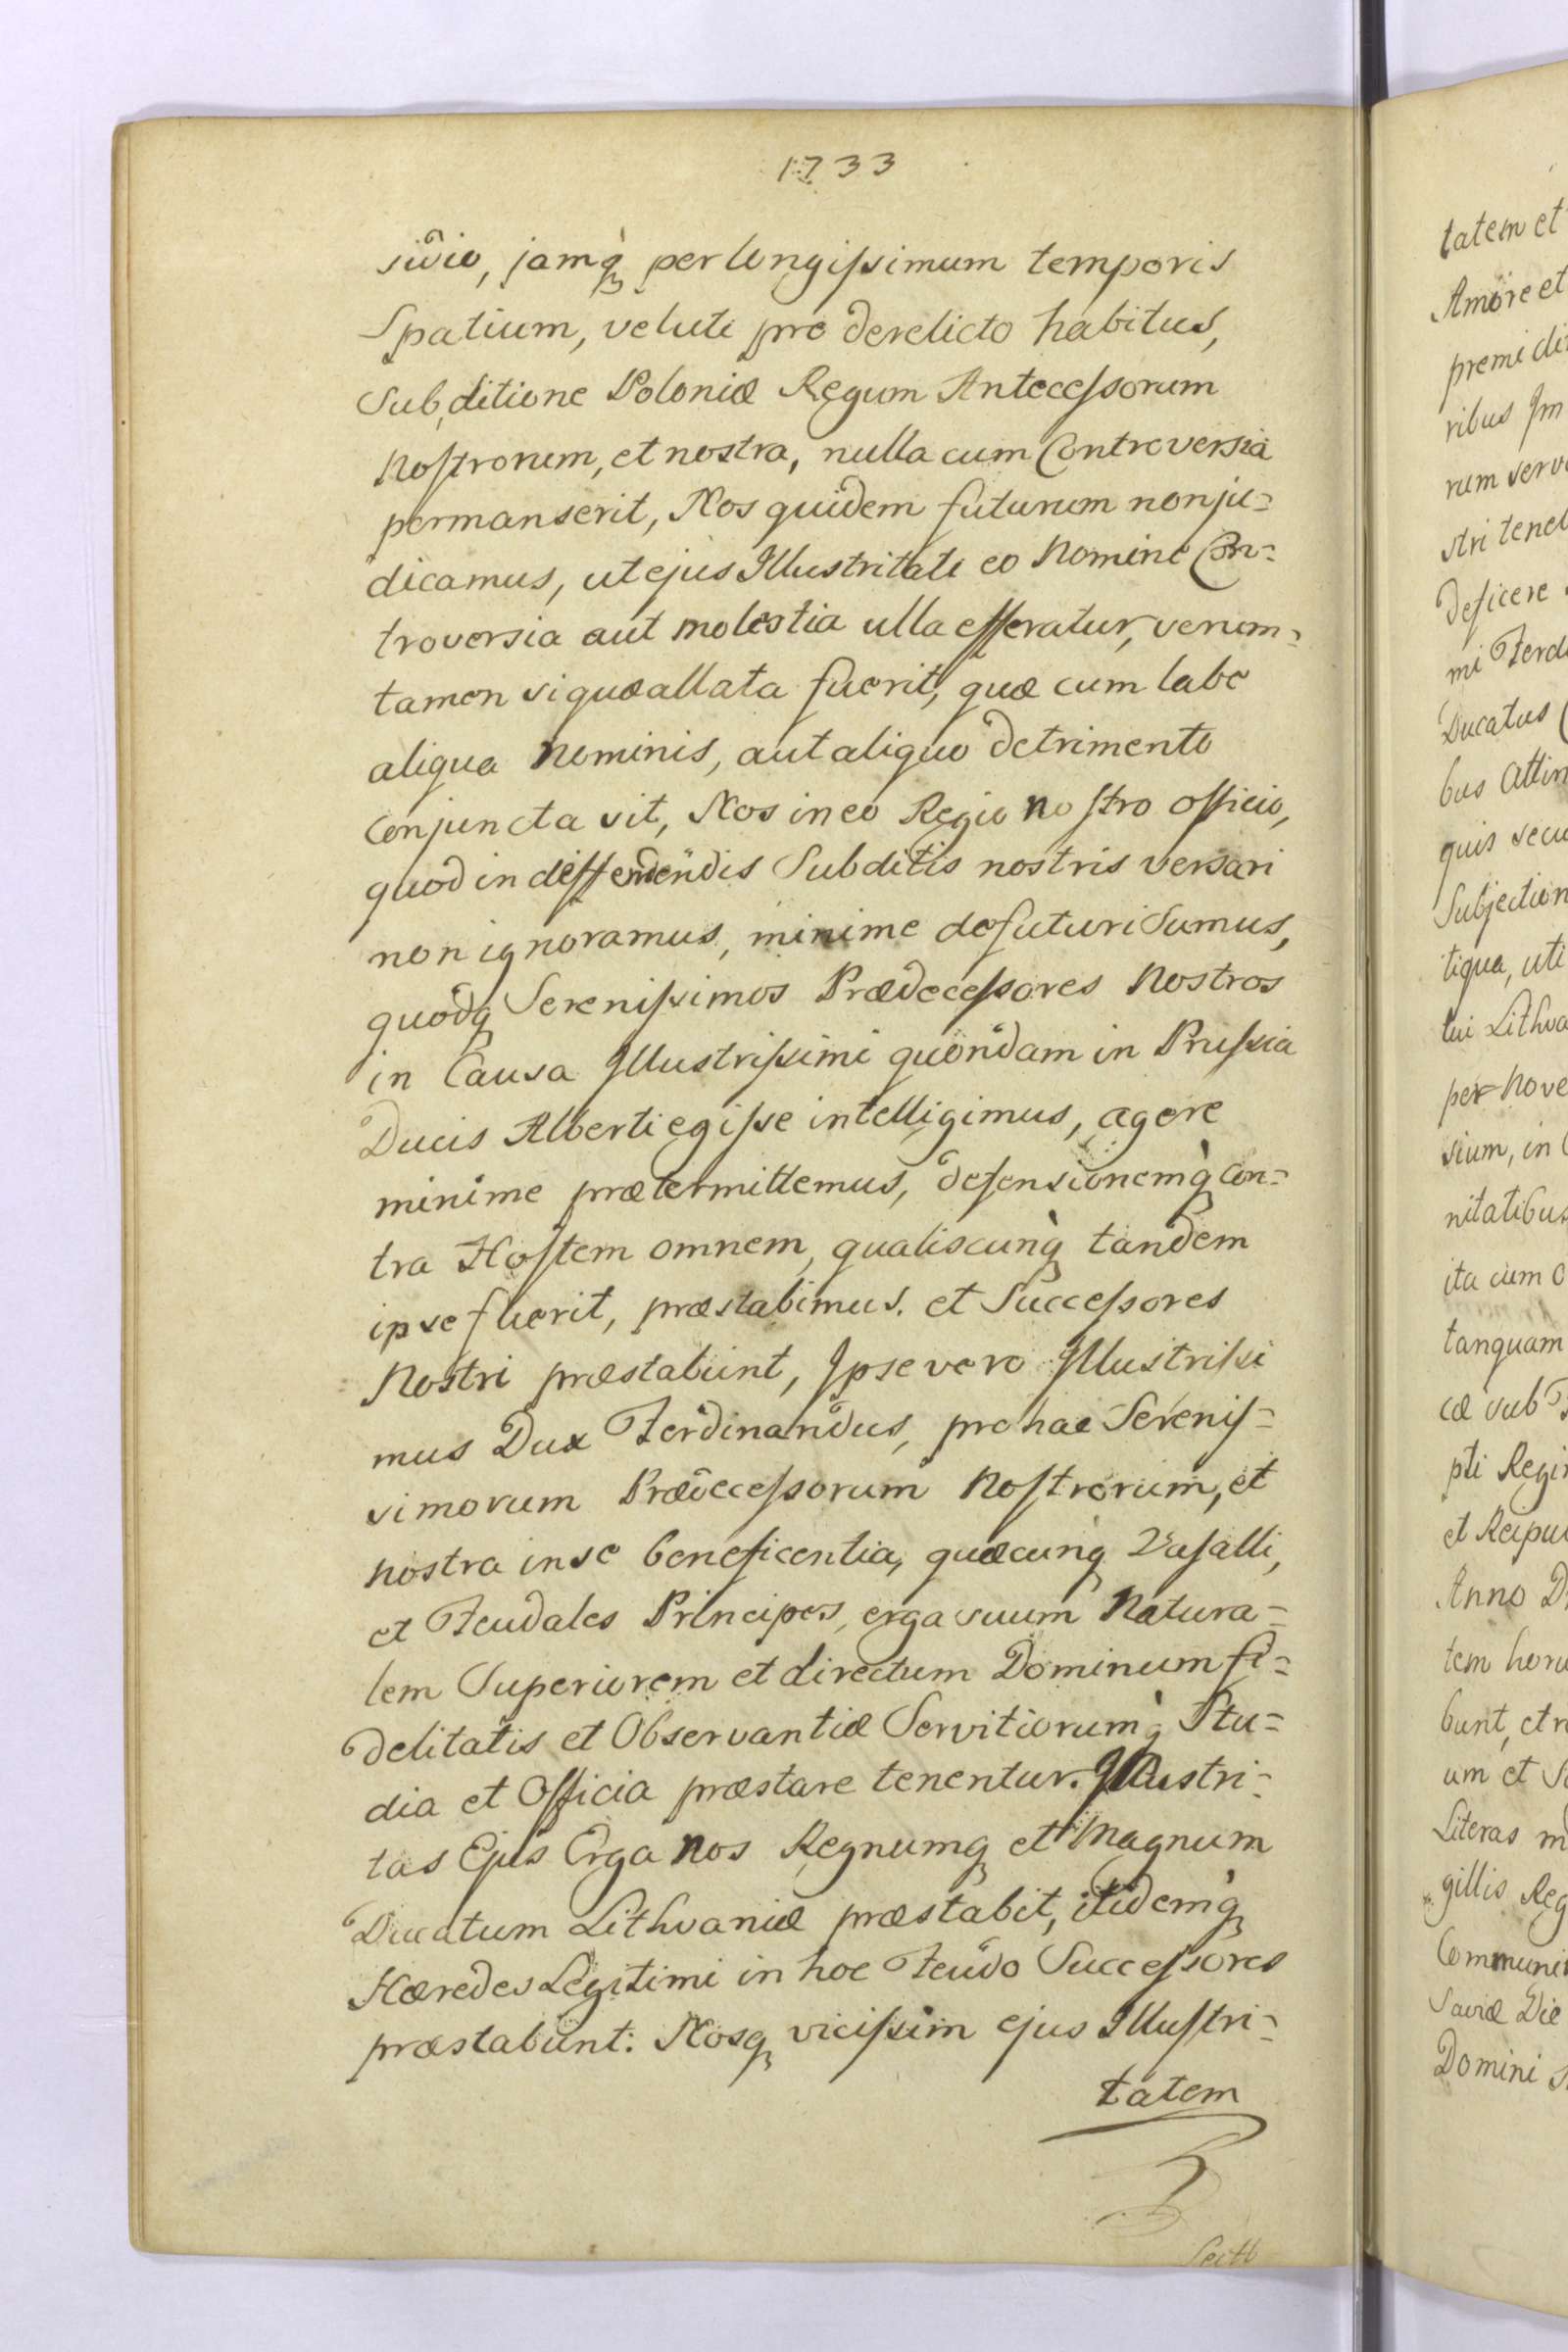 1733
sidio, jamq́ per longiſsimum temporis
Spatium, veluti pro derelicto habitus,
Sub ditione Poloniæ Regum Anteceſsorum
Noſtrorum, et nostra, nulla cum Controversia
permanserit, Nos quidem futurum non ju=
dicamus, ut ejus Illustritati eo Nomine Con=
troversia aut molestia ulla efferatur, verum=
tamen si quæ allata fuerit, quæ cum labe
aliqua Nominis, aut aliquo detrimento
conjuncta sit, Nos in eo Regio noſtro officio,
quod in deffendendis Subditis nostris versari
non ignoramus, minime defuturi Sumus,
quodq Sereniſsimos Prædeceſsores Nostros
in Causa Illustriſsimi quondam in Pruſsia
Ducis Alberti egiſse intelligimus, agere
minime prætermittemus, defensionemq́ con=
tra Hoſtem omnem, qualiscunq́ tandem
ipse fuerit, præstabimus. et Succeſsores
Nostri præstabunt, Ipse vero Illustriſsi
mus Dux Ferdinandus, pro hac Sereniſ=
simorum Prædeceſsorum Noſtrorum, et
nostra in se beneficentia, quæcunq́ Vaſalli,
et Feudales Principes, erga suum Natura=
lem Superiorem et directum Dominum fi=
delitatis et Observantiæ Servitiorumq́ Stu=
dia et Officia præstare tenentur. Illustri=
tas Ejus Erga Nos Regnumq et Magnum
Ducatum Lithvaniæ præstabit, itidemq́
Hæredes Legitimi in hoc Feudo Succeſsores
præstabunt: Nosq viciſsim ejus Illuſtri=
tatem
tatem et
Amore et
premi
ribus
rum
stri
deficere
mi
Ducatus
bus
quis
Subjection
tiqua, uti
tui
per
sium, in
nitatibus
ita cum
tanquam
cæ sub
pti
et
Anno
tem
bunt, et
um et
Literas
gillis
Communi
Saviæ Die
Domini